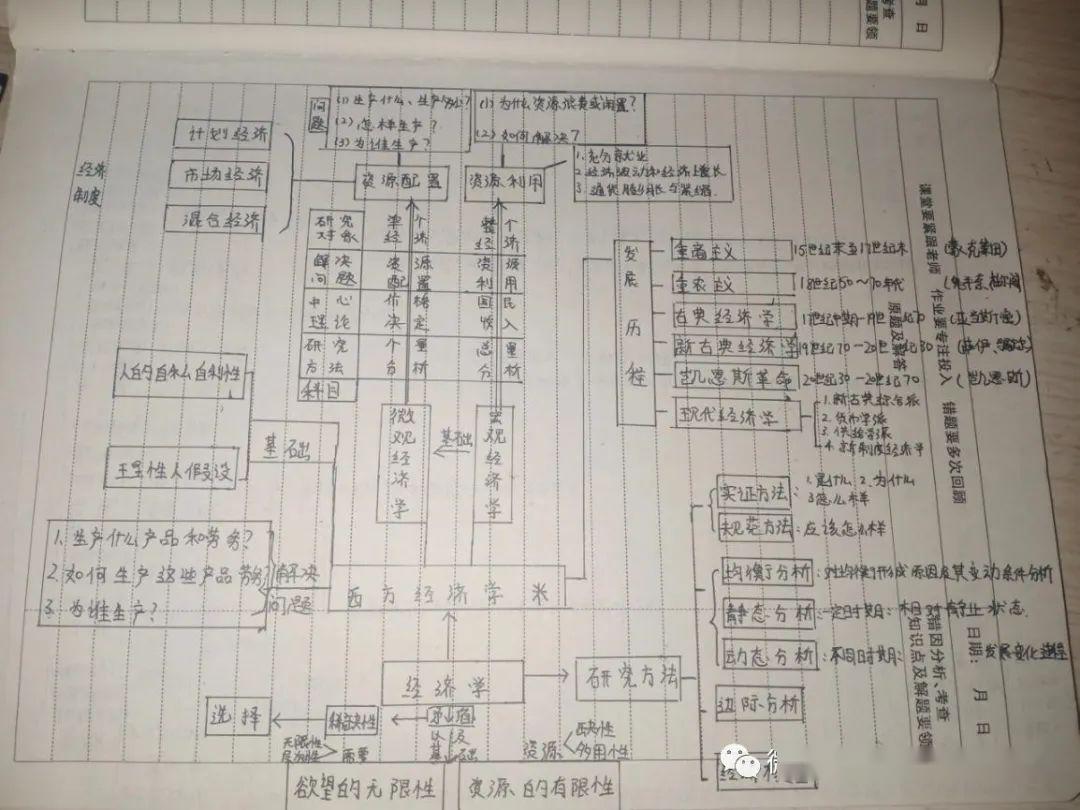 月 日
考查
题要领
问题
(1) 生产什么、生产多少?
(2) 怎样生产?
(3) 为谁生产?
(1) 为什么资源浪费或闲置?
(2) 如何解决?
计划经济
市场经济
混合经济
经济
制度
资源配置
资源利用
1. 充分就业
2. 经济波动和经济增长
3. 通货膨胀与紧缩
研究对象
单个经济
整个经济
解决问题
资源配置
资源利用
中心理论
价格决定
国民收入
研究方法
个量分析
总量分析
科目
微观经济学
基础
宏观经济学
发展历程
重商主义
15世纪末至17世纪末
重农主义
18世纪50—70年代
古典经济学
17世纪中期—19世纪70
(亚当斯密)
新古典经济学
19世纪70—20世纪30
凯恩斯革命
20世纪30—20世纪70
(凯恩斯)
现代经济学
1. 新古典综合派
2. 货币学派
3. 供给学派
4. 新制度经济学
人的自私自利性
理性人假设
基础
1. 生产什么产品和劳务?
2. 如何生产这些产品劳务
3. 为谁生产?
解决
问题
西方经济学
经济学
研究方法
实证方法:
1. 是什么 2. 为什么
3 怎么样
规范方法:应该怎么样
均衡分析:对均衡形成原因及其变动条件分析
静态分析:一定时期:相对静止状态.
动态分析:不同时期:发展变化过程
边际分析
选择
稀缺性
矛盾
以及
基础
无限性
需要
资源
缺性
多用性
欲望的无限性
资源的有限性
课堂要紧跟老师 作业要专注投入 错题要多次回顾
原题及解答
日期: 月 日
错因分析、考查
知识点及解题要领